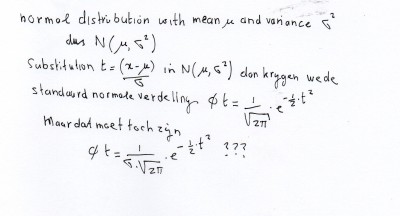 normal distribution with mean μ and variance σ²
dus N(μ, σ²)
Substitution t = (x-μ)/σ in N(μ, σ²) dan krygen we de
standaard normale verdeling φ t = 1/√2π · e^(-½·t²)
Maar dat moet toch zijn
φ t = 1/(σ·√2π) · e^(-½·t²) ???